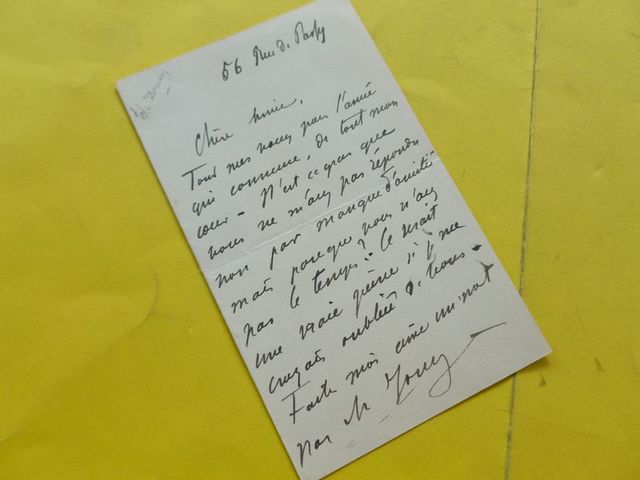 56 Rue de Passy
Chère amie,
Tous mes vœux pour l'année
qui commence, de tout mon
cœur - N'est ce pas que
vous ne m'avez pas répondu
non par manque d'amitié
mais parce que vous n'avez
pas le temps? Ce serait
une vraie peine si je me
croyais oubliée de vous.
Faite moi dire un mot
par M